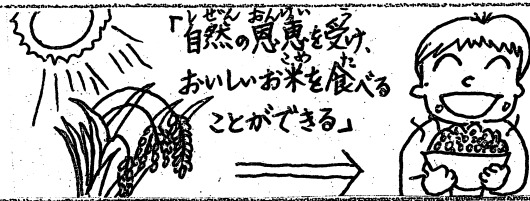 「自然の恩恵を受け、
おいしいお米を食べる
ことができる」